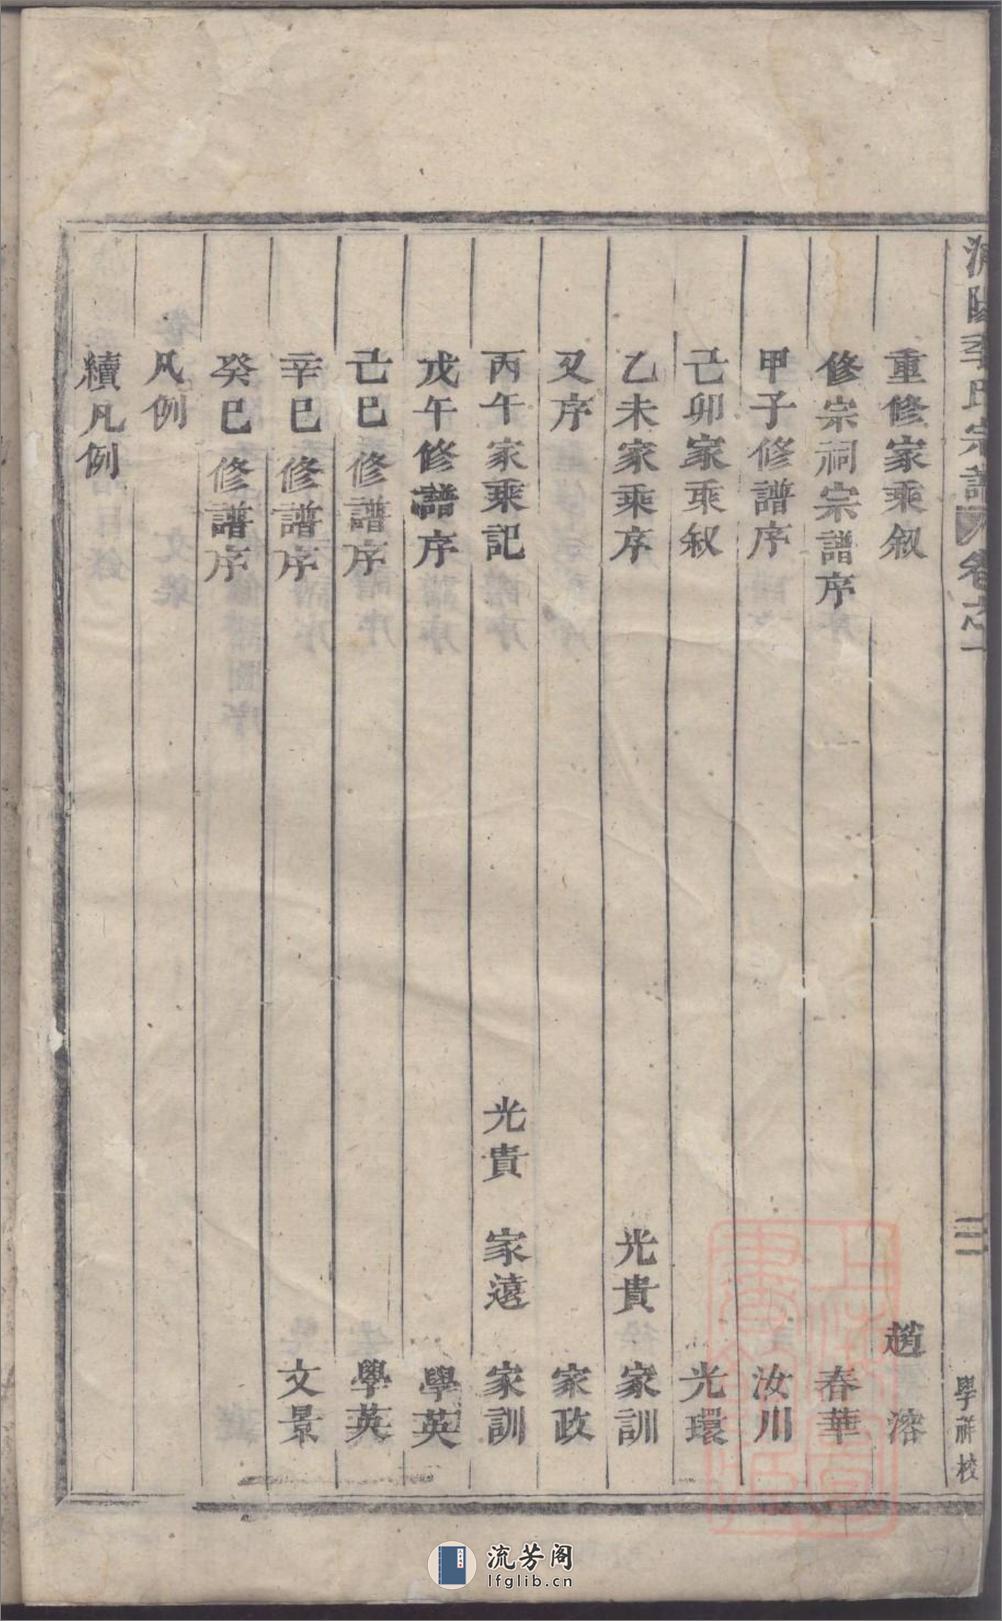 李氏宗譜 卷之一 二 學祥校
重修家乘叙 趙溶
修宗祠宗譜序 春華
甲子修譜序 汝川
己卯家乘叙 光環
乙未家乘序 光貴 家訓
又序 家政
丙午家乘記 光貴 家遠 家訓
戊午修譜序 學英
己巳修譜序 學英
辛巳修譜序 文景
癸巳修譜序
凡例
續凡例
流芳阁
lfglib.cn